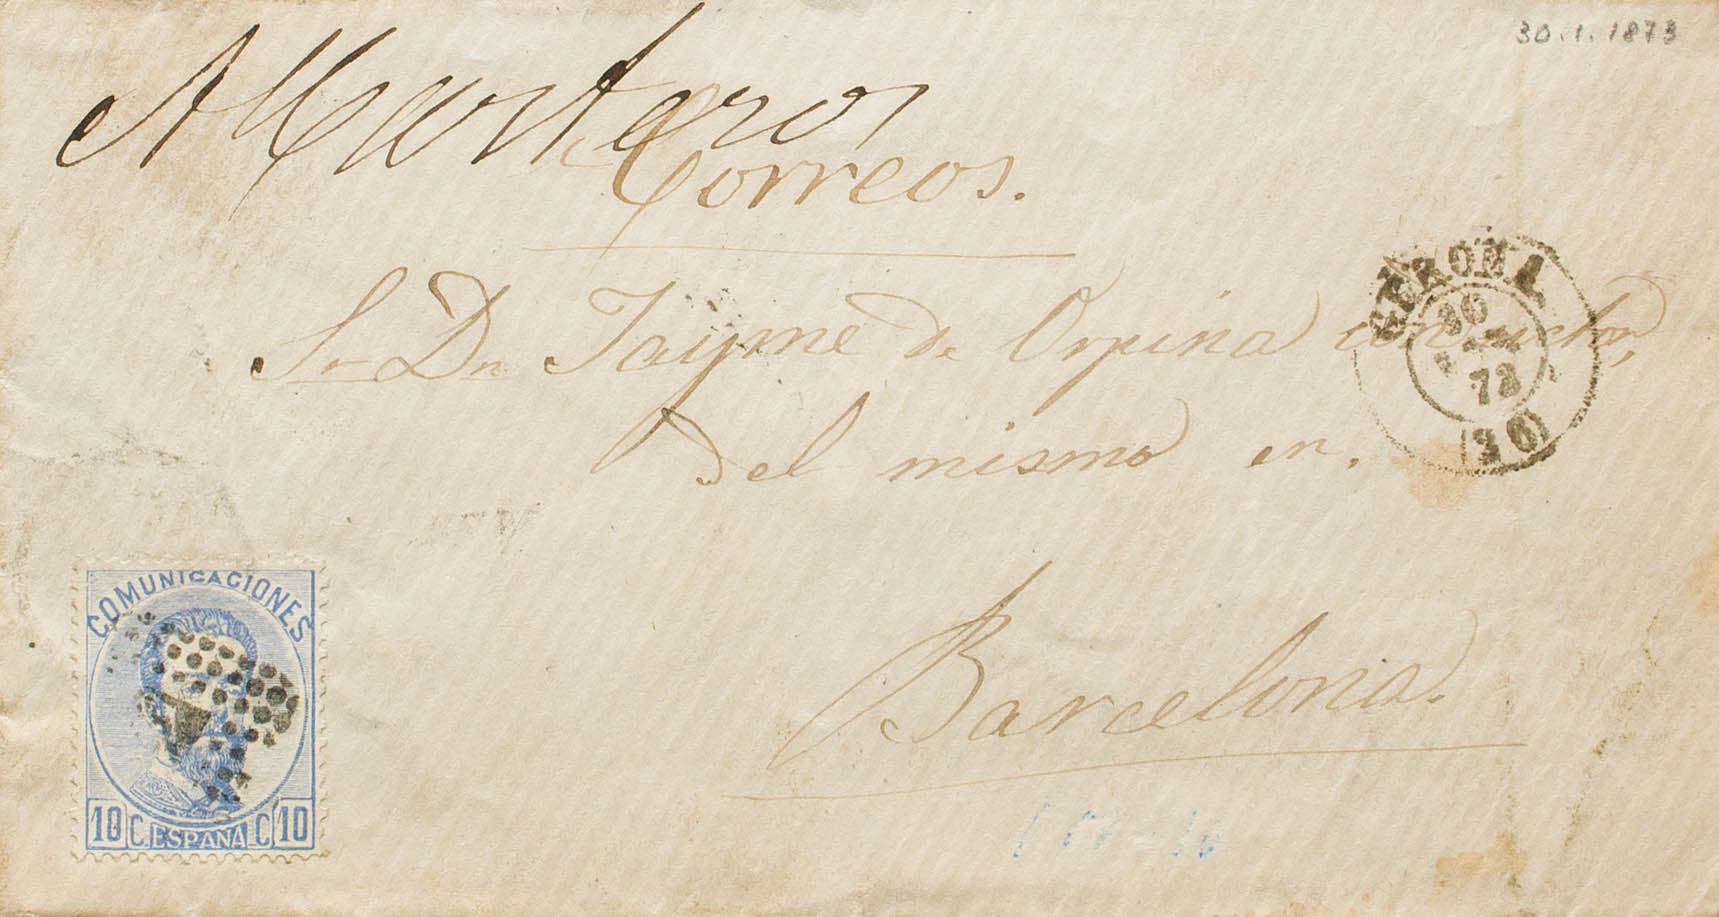 30.1.1873
Correos.
Sr Dn Jayme de Orpina conductor,
del mismo en.
Barcelona.
GERONA
30
73
COMUNICACIONES
10 C. ESPAÑA C 10